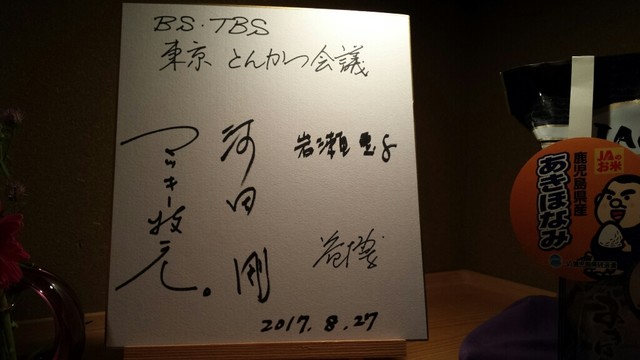 BS・TBS
東京 とんかつ会議
マッキー牧元。
河田剛
岩瀬
2017.8.27
JAのお米
鹿児島県産
あきほなみ